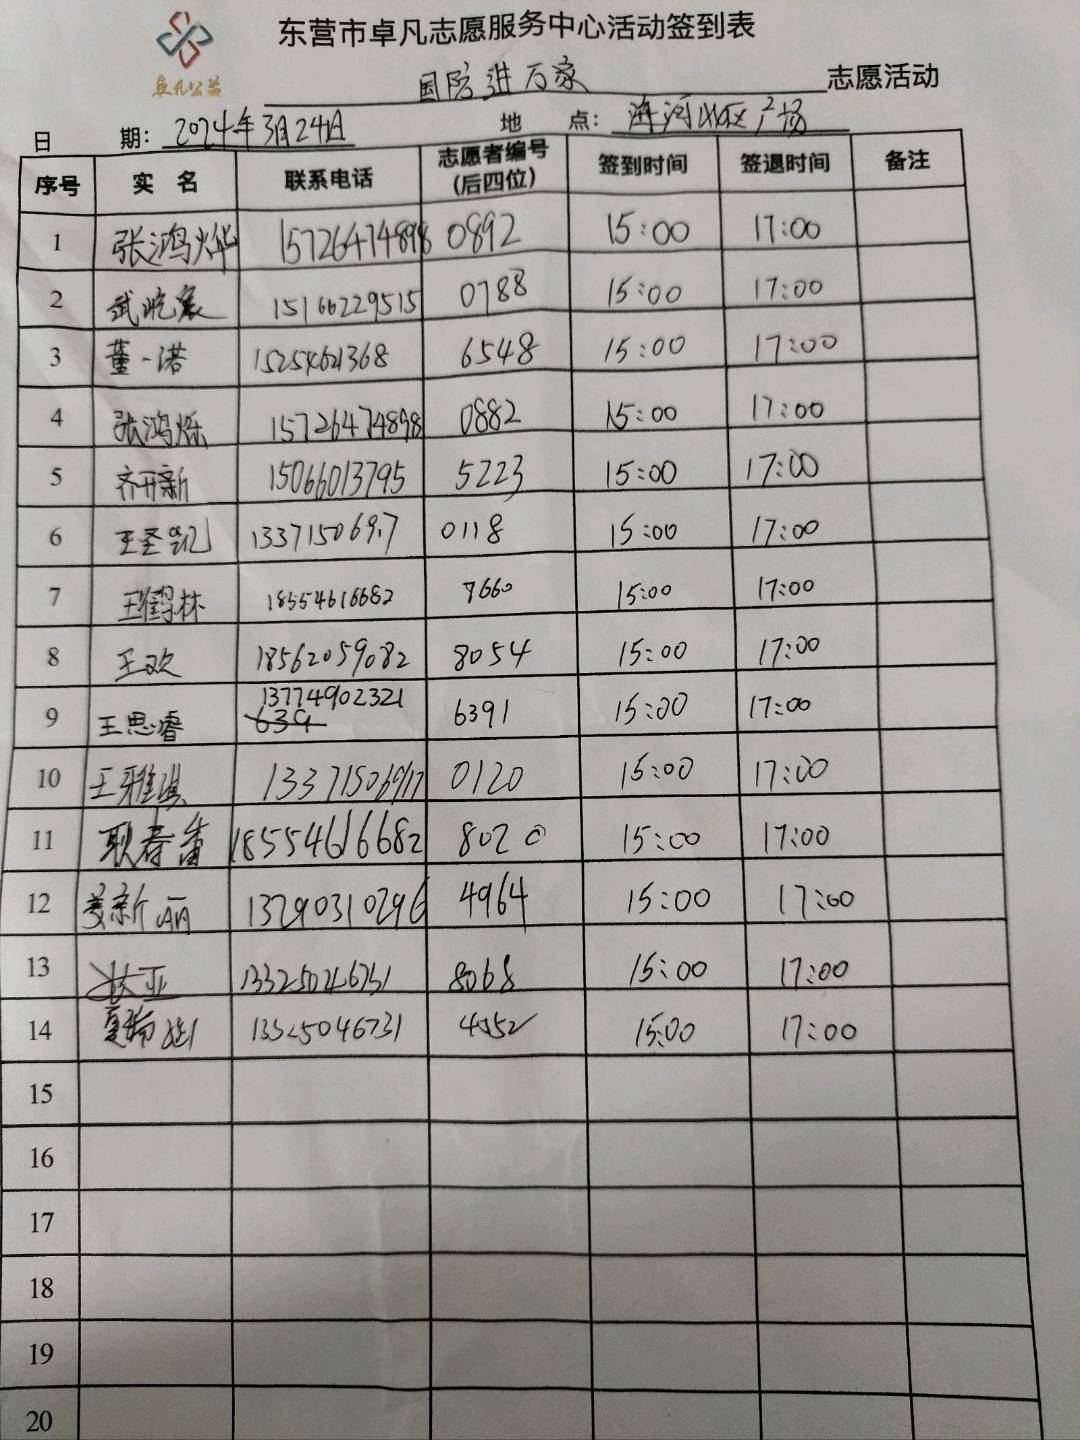 东营市卓凡志愿服务中心活动签到表
卓凡公益
国防进万家 志愿活动
日 期: 2024年3月24日 地 点: 河 广场
序号 实 名 联系电话 志愿者编号(后四位) 签到时间 签退时间 备注
1 张鸿烨 15726474898 0892 15:00 17:00
2 武 15166229515 0788 15:00 17:00
3 董一诺 6548 15:00 17:00
4 张鸿烁 15726474898 0882 15:00 17:00
5 齐开新 15066013795 5223 15:00 17:00
6 王圣凯 0118 15:00 17:00
7 王鹤林 18554616682 7660 15:00 17:00
8 王欢 18562059082 8054 15:00 17:00
9 王思睿 13774902321 6391 15:00 17:00
10 王雅琪 0120 15:00 17:00
11 耿春 18554616682 8020 15:00 17:00
12 姜新丽 13290310296 4964 15:00 17:00
13 亚 8068 15:00 17:00
14 夏 15:00 17:00
15
16
17
18
19
20